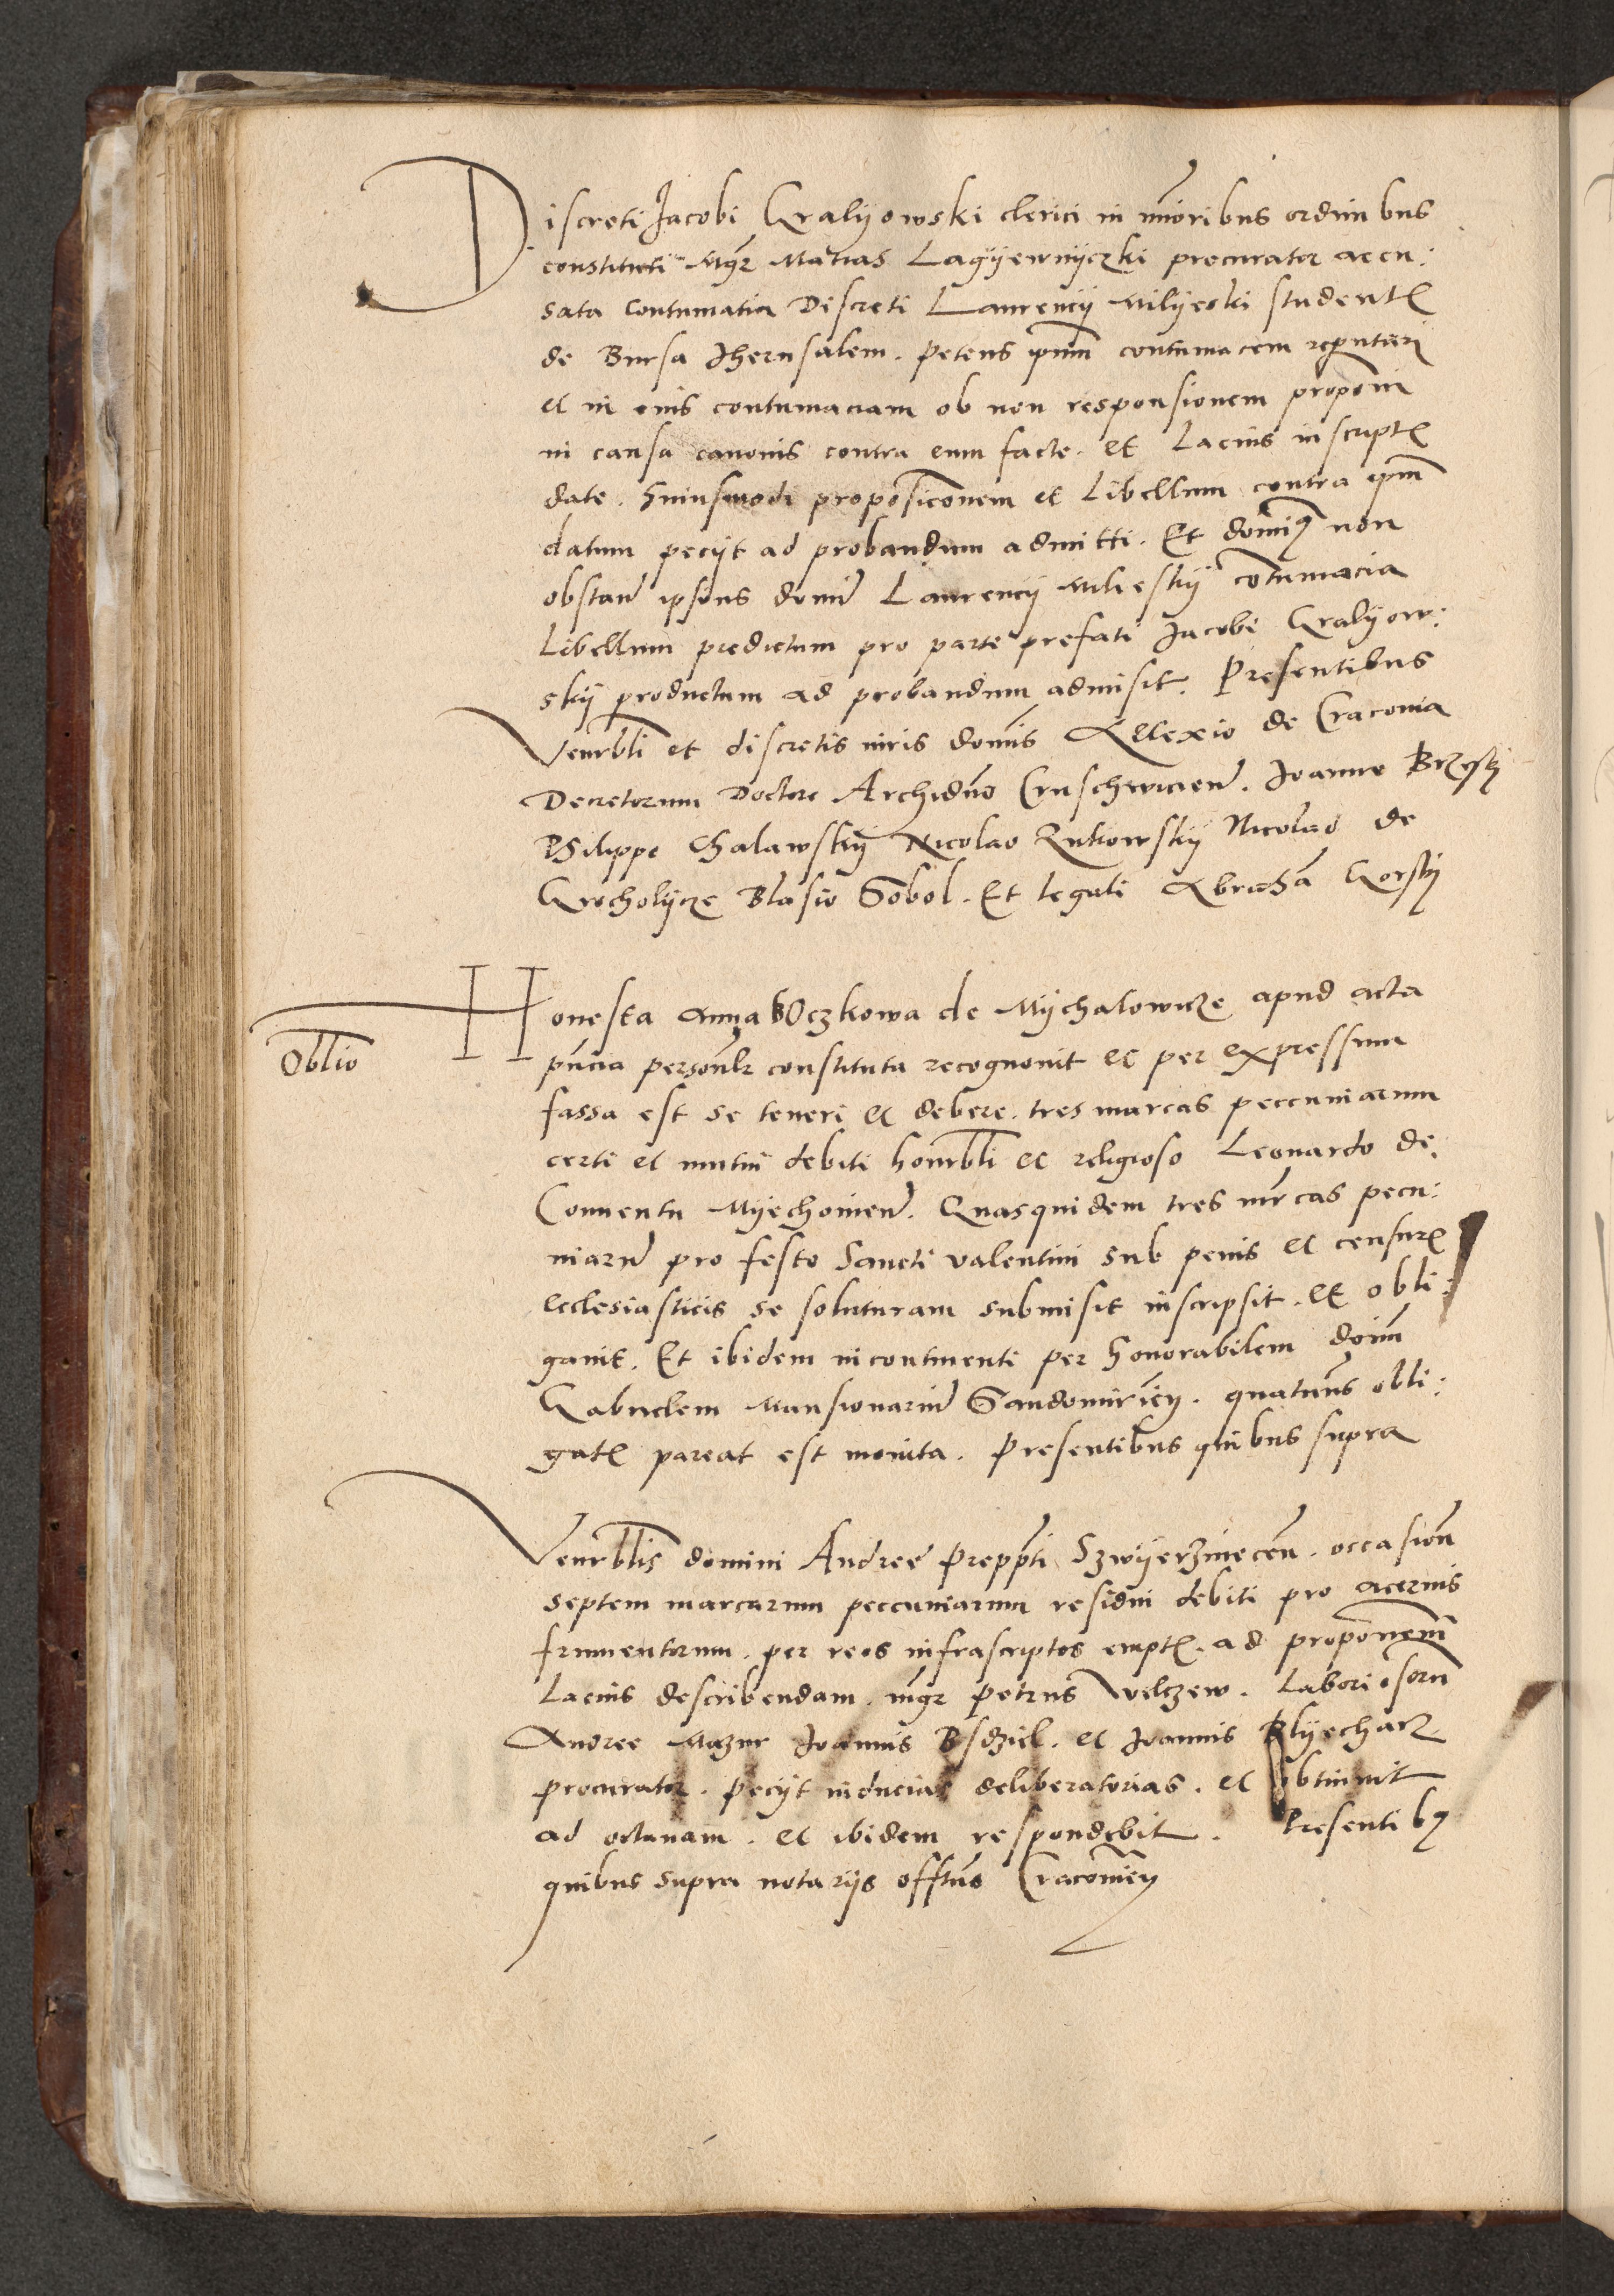 Discreti Jacobi Gralÿowski clerici in mīoribus ordinibus
constituti Mgr̄ Matias Lagÿewnÿczki procurator accu:
sata contumatia Discreti Laurencÿ Milÿeski studentꝭ
de Bursa Jherusalem. Petens ipsum̄ contumacem reputari
et in eius contumaciam ob non responsionem proponi
in causa canonis contra eum facte. et Lacius in scriptꝭ
date. huiusmodi proposic̄onem et Libellum contra ipm̄
datum pecÿt ad probandum admitti. Et domiꝰ non
obstan̄ ipsius domī Laurencÿ Miliesskÿ cōtumacia
Libellum predictum pro parte prefati Jacobi Gralÿow:
skÿ productum ad probandum admisit. Presentibus
Venerbli et discretis uiris domīs Allexio de Cracouia
Decretorum Doctore Archidno Cruschwicien̄. Joanne
Philippo Chalawskÿ Nicolao Rutkowskÿ Nicolao de
Grocholÿcze Blasio Sobol. Et legali Abrahā Gorskÿ
Oblio
Honesta Anna Oczkowa de Mÿchalowicze apud acta
pn̄cia personlr̄ constituta recognouit et per expressum
fassa est se teneri et debere. tres marcas peccuniarum
certi et mutui debiti honrbli et religioso Leonardo de
Conuentu Mÿechouien̄. Quasquidem tres mr̄cas pecu:
niarū pro festo Sancti Valentini sub penis et censurꝭ
ecclesiasticis se soluturam submisit inscripsit. et obli:
gauit. Et ibidem incontinenti per honorabilem doīm
Gabrielem Mansionariū Sandomirien̄. quatin̄s obli:
gatꝭ pareat est monita. Presentibus quibus supra
Venerblis domini Andree Prepp̄ti Szwÿerzinecen̄. occasion̄
septem marcarum peccuniarum residui debiti pro aceruis
frumentorum. per reos infrascriptos emptꝭ. ad propōnem
Lacius describendam. mgr̄ Petrus Wilczew. Laboriosorū
Andree Mazur Joannis Bsdziel. et Joannis Blÿecharz
procurator. pecÿt inducias deliberatorias. et obtinuit
ad octauam. et ibidem respondebit. Presentibꝰ
quibus supra notarÿs offtūs Cracouien̄